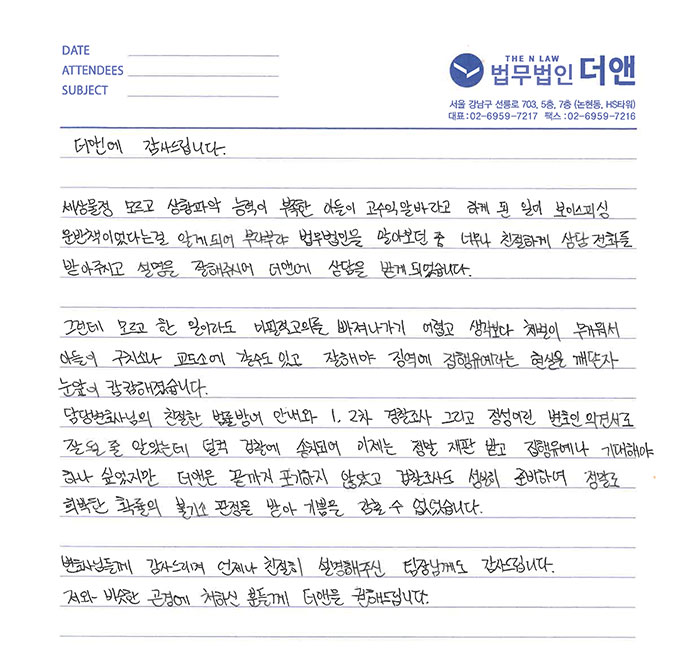 DATE
ATTENDEES
SUBJECT
THE N LAW
법무법인 더앤
서울 강남구 선릉로 703, 5층, 7층 (논현동, HS타워)
대표:02-6959-7217 팩스:02-6959-7216
더앤에 감사드립니다.
세상물정 모르고 상황파악 능력이 부족한 아들이 고수익알바라고 하게 된 일이 보이스피싱
운반책이었다는걸 알게되어 부랴부랴 법무법인을 알아보던 중 너무나 친절하게 상담 전화를
받아주시고 설명을 잘해주시어 더앤에 상담을 받게 되었습니다.
그런데 모르고 한 일이라도 미필적고의를 빠져나가기 어렵고 생각보다 처벌이 무거워서
아들이 구치소나 교도소에 갈수도 있고 잘해야 징역에 집행유예라는 현실을 깨닫자
눈앞이 캄캄해졌습니다.
담당변호사님의 친절한 법률방어 안내와 1, 2차 경찰조사 그리고 정성어린 변호인 의견서로
잘 된 줄 알았는데 덜컥 검찰에 송치되어 이제는 정말 재판 받고 집행유예나 기대해야
하나 싶었지만 더앤은 끝까지 포기하지 않았고 검찰조사도 성실히 준비하여 정말로
희박한 확률의 불기소 판정을 받아 기쁨을 감출 수 없었습니다.
변호사님들께 감사드리며 언제나 친절히 설명해주신 팀장님께도 감사드립니다.
저와 비슷한 곤경에 처하신 분들께 더앤을 권해드립니다.